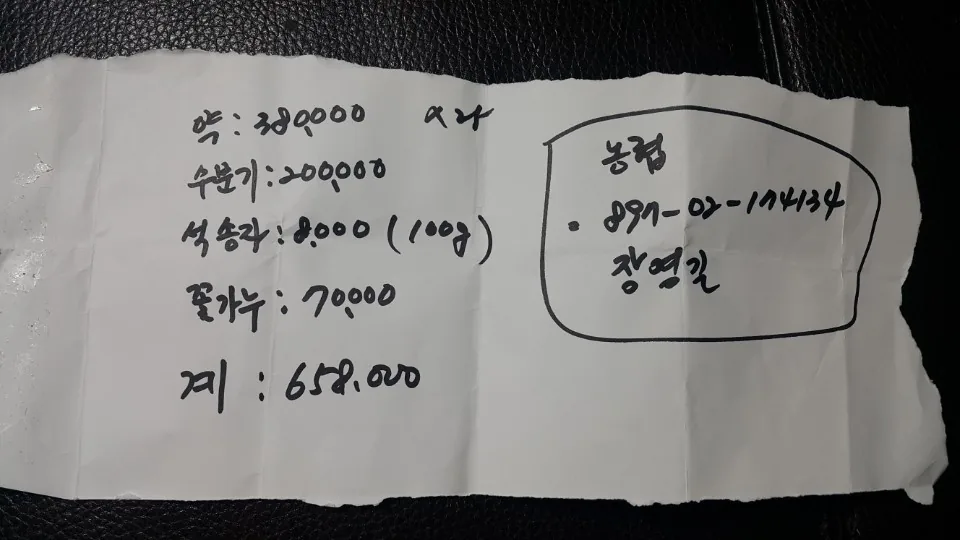 약 : 380,000
수분기 : 200,000
석송자 : 8,000 (100g)
꽃가루 : 70,000
계 : 658,000
농협
897-02-174134
장영길